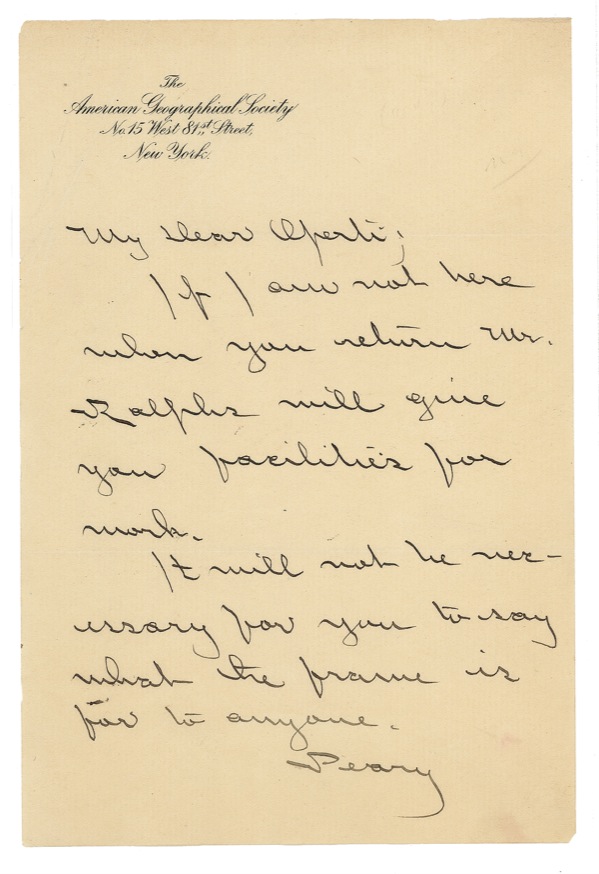 The
American Geographical Society
No. 15 West 81st Street,
New York.
My dear Operti;
If I am not here
when you return Mr.
Ralphs will give
you facilities for
work.
It will not be nec-
essary for you to say
what the frame is
for to anyone.
Peary